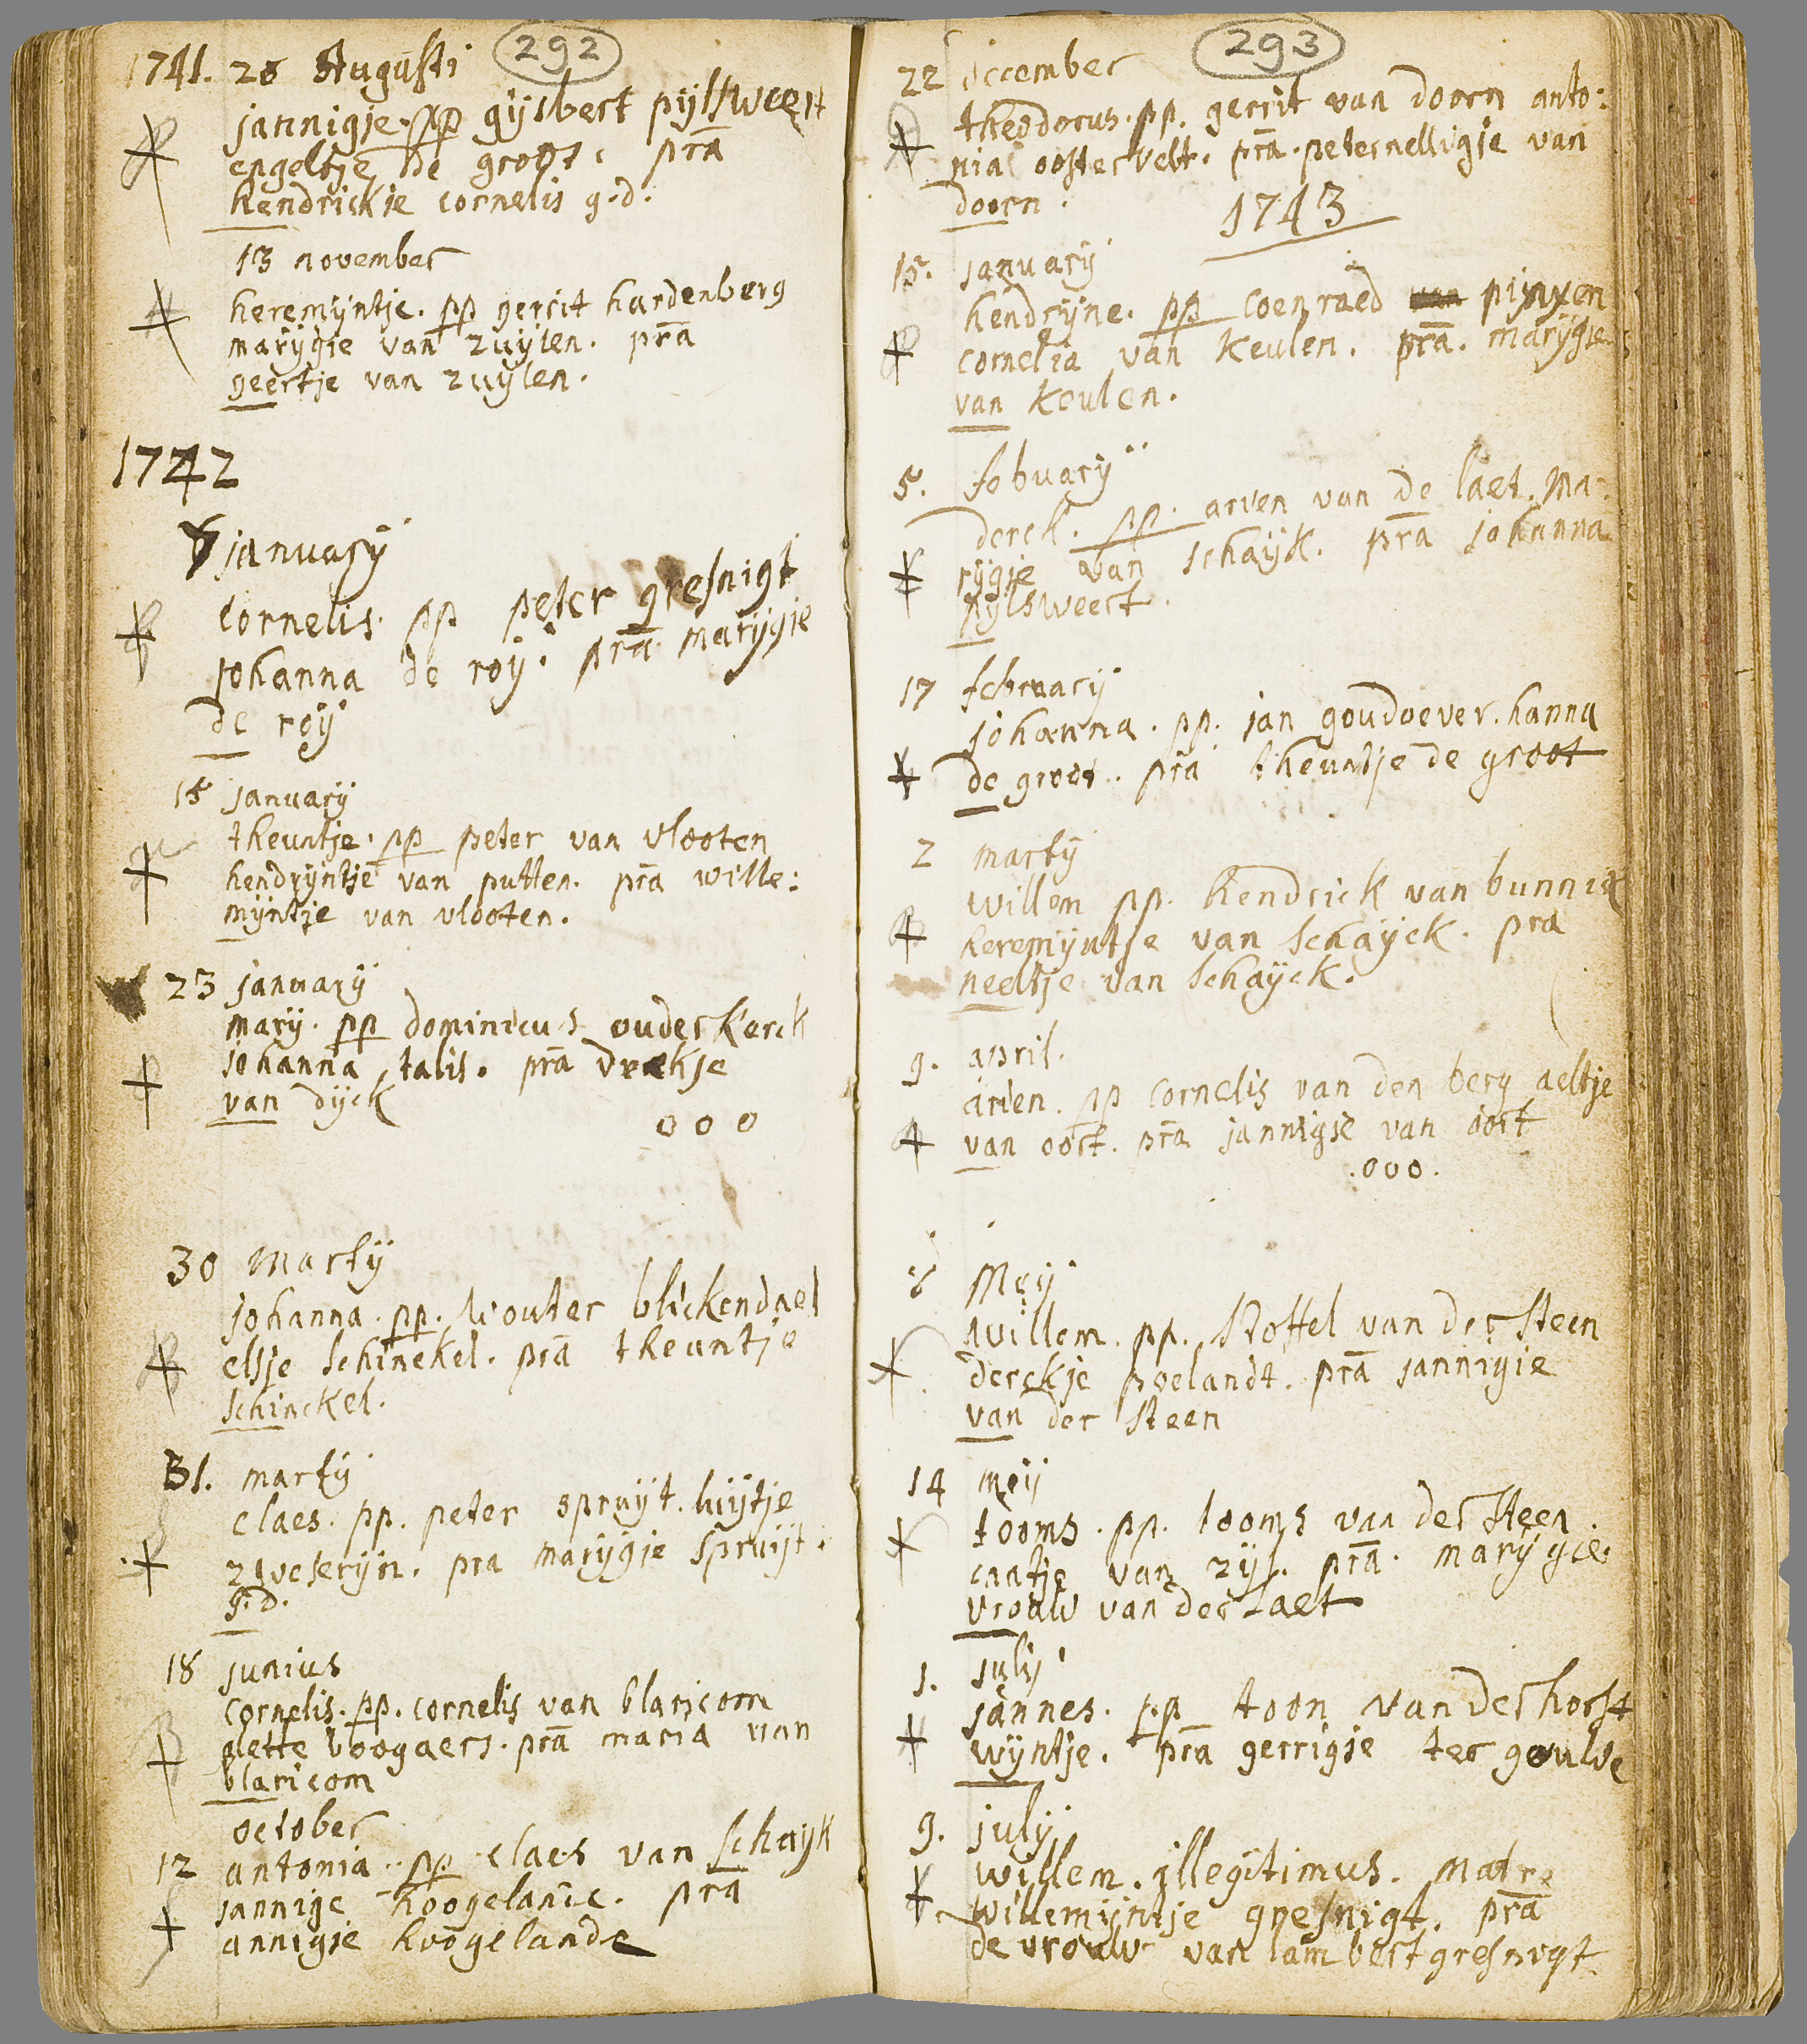 292
1741. 28 Augusti
jannigje. pp gijsbert pijlsweert
engeltje de groot. prā
hendrickje cornelis g.d.
13 november
heremijntje. pp gerrit hardenberg
marijgje van zuijlen. prā
geertje van zuijlen.
1742
january
cornelis. pp peter gresnigt
johanna de roij. prā marijgje
de roij
15 january
theuntje. pp peter van vlooten
hendrijntje van putten. prā wille:
mijntje van vlooten.
23 january
marij. pp dominicus ouderkerck
johanna talis. prā
van dijck
000
30 martij
johanna. pp. wouter blickendael
elsje schinckel. prā theuntje
schinckel.
31. martij
claes. pp. peter spruijt. luijtje
zweserijn. pra marijgje spruijt.
g.d.
18 junius
cornelis. pp. cornelis van blaricom
plette boogaers. prā maria van
blaricom
october
12 antonia. pp claes van schaijk
jannige hoogelande. prā
annigje hoogelande
293
22 december
theodorus. pp. gerrit van doorn anto:
nia oostervelt. prā. peternelligje van
doorn.
1743
15. january
hendrijne. pp coenraed van pijnxen
cornelia van keulen. prā. marijgje
van keulen.
5. febuarij
derck. pp. arien van de laet. ma:
rijgje van schaijk. prā johanna
pijlsweert.
17 februarij
johanna. pp. jan goudoever. hanna
de groot. prā theuntje de groot
2 martij
willem pp. hendrick van bunnick
heremijntje van schaijck. pra
neeltje van schaijck.
9. april.
arien. pp cornelis van den berg aeltje
van oost. prā jannigje van oost
.000.
Meij
willem. pp. stoffel van der steen
derckje poelandt. prā jannigje
van der steen
14 meij
tooms. pp. tooms van der steen.
caatje van zijl. prā. marijgie
vrouw van der laet
1. julij
jannes. pp toon van der horst
wijntje. prā gerrigje ter gouwe
9. julij
willem. illegitimus. matre
willemijntje gresnigt. prā
de vrouw van lambert gresnigt